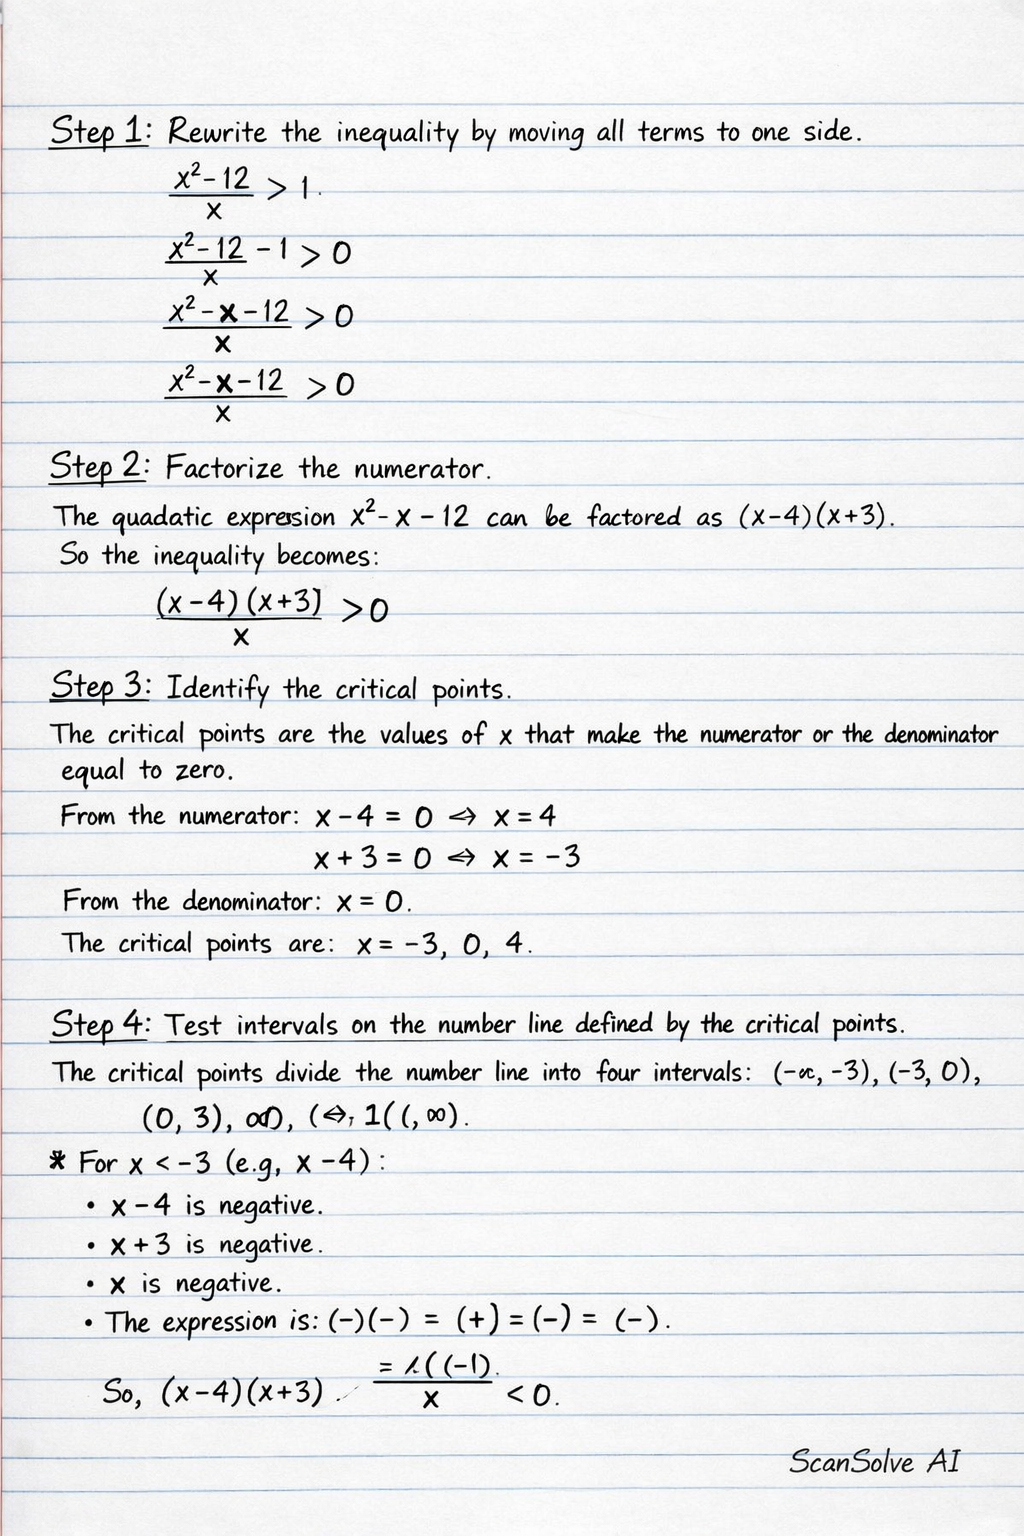 Step 1: Rewrite the inequality by moving all terms to one side.
x²-12
x > 1.
x²-12 - 1 > 0
x
x² - x - 12 > 0
x
x² - x - 12 > 0
x
Step 2: Factorize the numerator.
The quadatic expression x² - x - 12 can be factored as (x-4)(x+3).
So the inequality becomes:
(x-4)(x+3] > 0
x
Step 3: Identify the critical points.
The critical points are the values of x that make the numerator or the denominator
equal to zero.
From the numerator: x - 4 = 0 ⇔ x = 4
x + 3 = 0 ⇔ x = -3
From the denominator: x = 0.
The critical points are: x = -3, 0, 4.
Step 4: Test intervals on the number line defined by the critical points.
The critical points divide the number line into four intervals: (-∝, -3), (-3, 0),
(0, 3), (⇔, 1((, ∞).
* For x < -3 (e.g, x -4) :
• x - 4 is negative.
• x + 3 is negative.
• x is negative.
• The expression is: (-)(-) = (+) = (-) = (-).
= ((-1).
So, (x-4)(x+3) x < 0.
ScanSolve AI